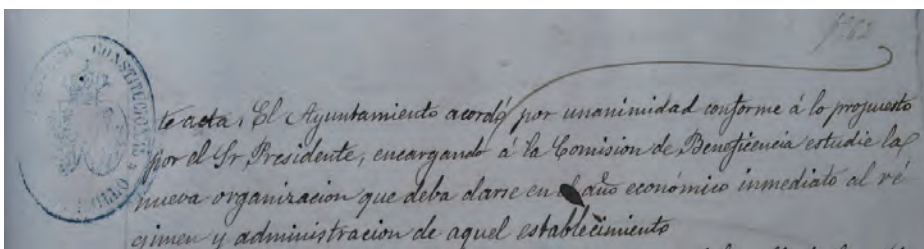 1862
CONSTITUCIONAL
te acta. El Ayuntamiento acordó por unanimidad conforme á lo propuesto
por el Sr. Presidente, encargando á la Comision de Beneficencia estudie la
nueva organizacion que deba darse en el año económico inmediato al ré
gimen y administracion de aquel establecimiento